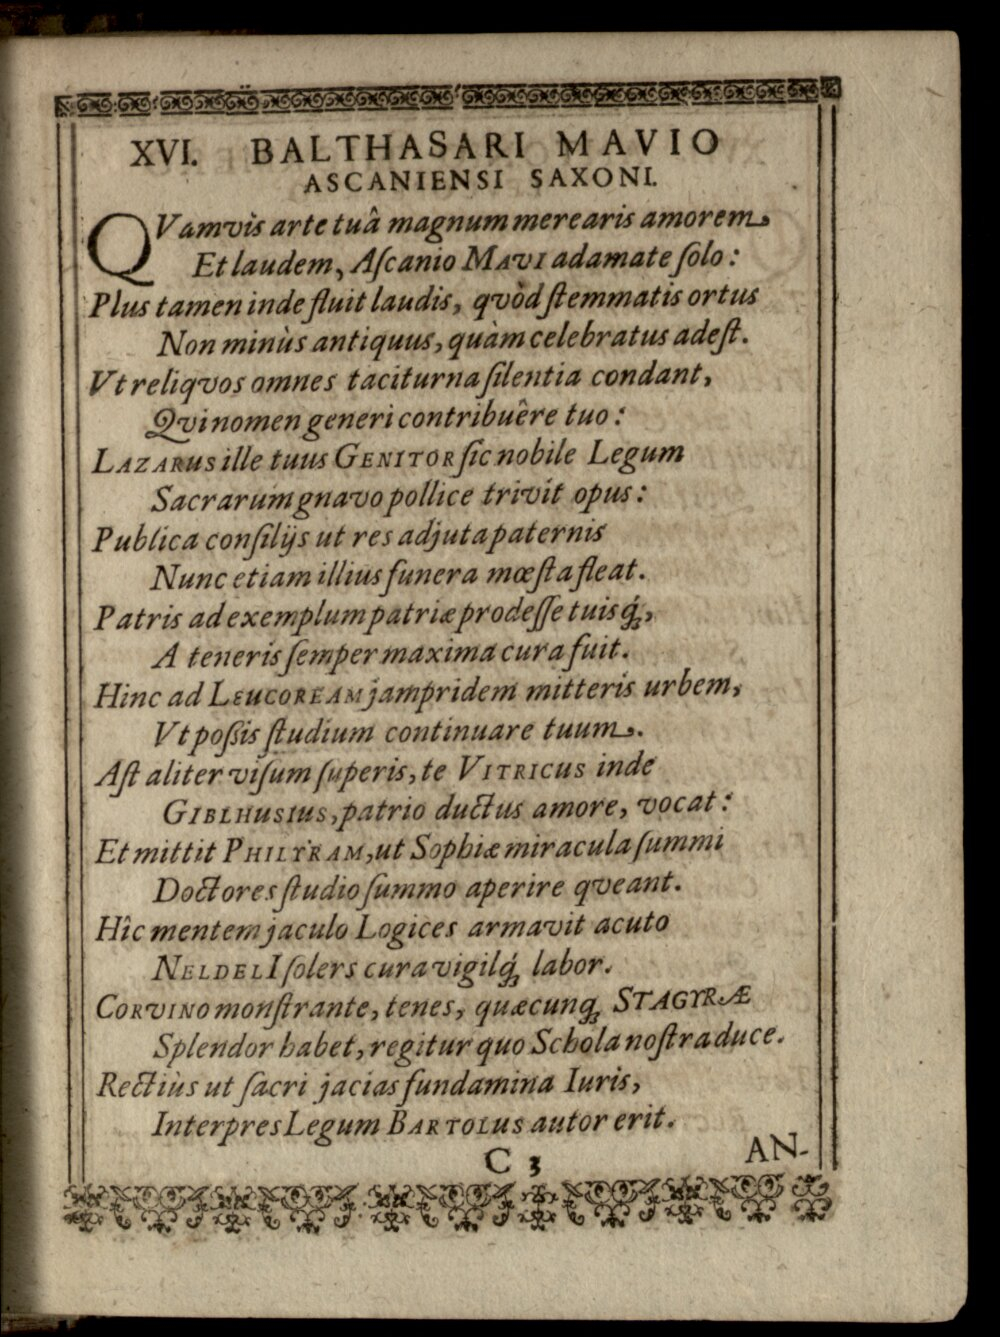 XVI. BALTHASARI MAVIO
ASCANIENSI SAXONI.
QVamvìs arte tuâ magnum merearis amorem,
Et laudem, Aſcanio MAVI adamate ſolo:
Plus tamen inde fluit laudis, qvòd ſtemmatis ortus
Non minùs antiquus, quàm celebratus adeſt.
Vt reliqvos omnes taciturna ſilentia condant,
Qvi nomen generi contribuêre tuo:
LAZARUS ille tuus GENITOR ſic nobile Legum
Sacrarum gnavo pollice trivit opus:
Publica conſilijs ut res adjuta paternis
Nunc etiam illius funera mœſta fleat.
Patris ad exemplum patriæ prodeſſe tuisq́;,
A teneris ſemper maxima cura fuit.
Hinc ad LEUCOREAM jampridem mitteris urbem,
Vt poßis ſtudium continuare tuum.
Aſt aliter viſum ſuperis, te VITRICUS inde
GIBLHUSIUS, patrio ductus amore, vocat:
Et mittit PHILYRAM, ut Sophiæ miracula ſummi
Doctores ſtudio ſummo aperire qveant.
Hîc mentem jaculo Logices armavit acuto
NELDELI ſolers cura vigilq́; labor.
CORVINO monſtrante, tenes, quæcunq; STAGYRÆ
Splendor habet, regitur quo Schola noſtra duce.
Rectiùs ut ſacri jacias fundamina Iuris,
Interpres Legum BARTOLUS autor erit.
C 3 AN-